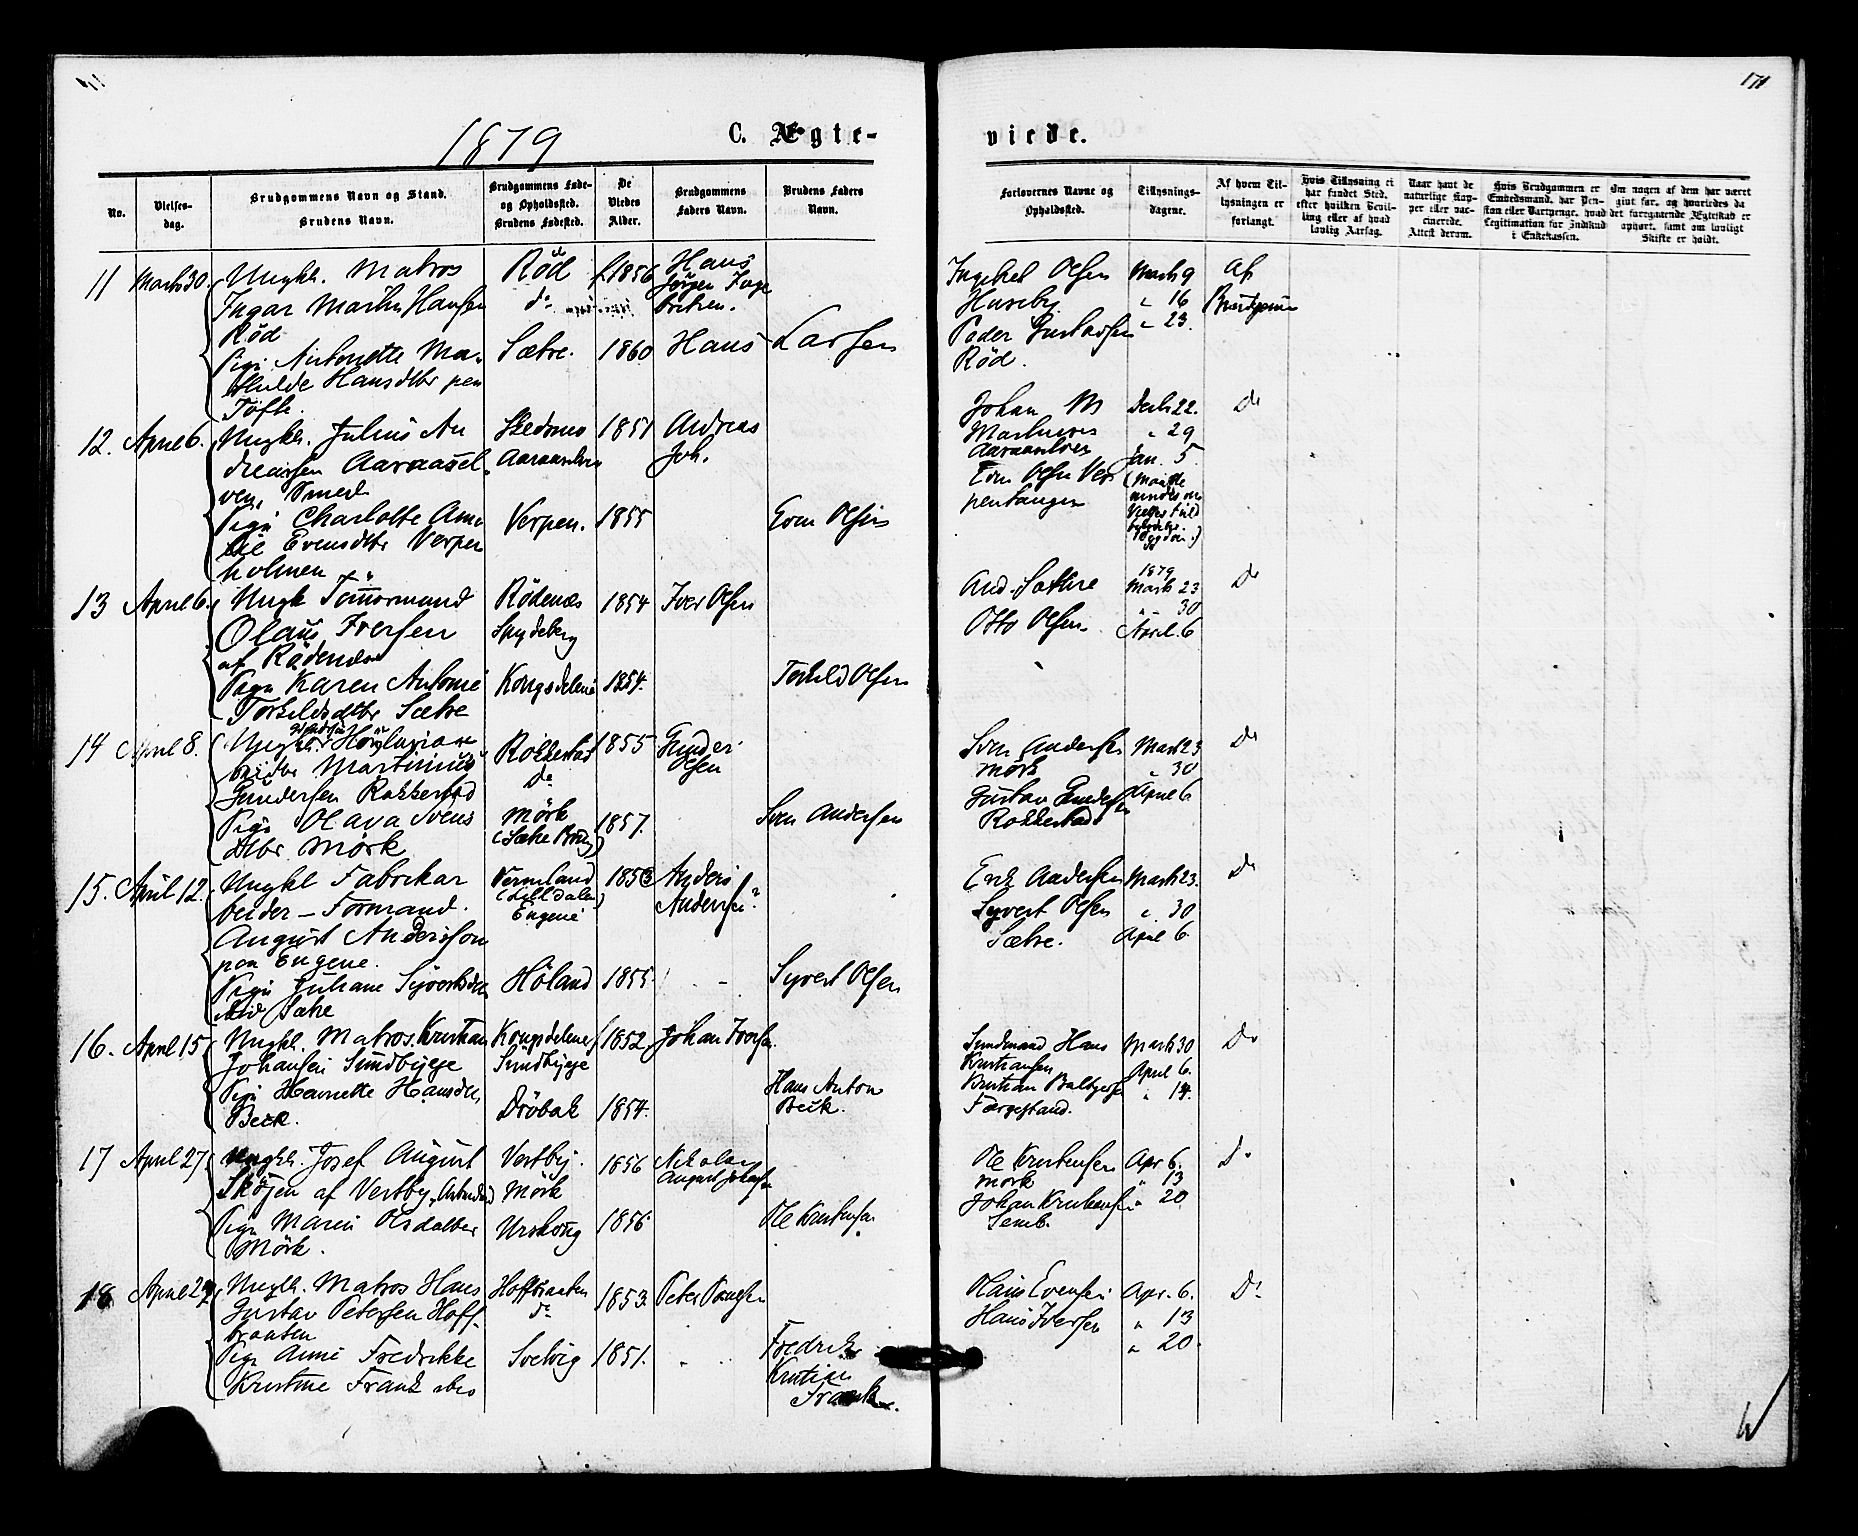 171
1879
C. Ægte-
viede.
No.
Vielses-
dag.
Brudgommens Navn og Stand.
Brudens Navn.
Brudgommens Føde-
og Opholdsted.
Brudens Fødested.
De
Viedes
Alder.
Brudgommens
Faders Navn.
Brudens Faders
Navn.
Forlovernes Navne og
Opholdsted.
Tillysnings-
dagene.
Af hvem Til-
lysningen er
forlangt.
Hvis Tillysning ei
har fundet Sted,
efter hvilken Bevil-
ling eller af hvad
lovlig Aarsag.
Naar havt de
naturlige Kop-
per eller vac-
cinerede.
Attest derom.
Hvis Brudgommen er
Embedsmand, har Pen-
sion eller Vartpenge, hvad
Legitimation for Indskud
i Enkekassen.
Om nogen af dem har været
givt før, og hvorledes da
det foregaaende Ægteskab er
ophørt, samt om lovligt
Skifte er holdt.
11 Marts 30.
Ungkl. Matros
Ingar Martin Hansen
Röd
Pige Antonette Ma-
thilde Hansdtr paa
Tofte.
Röd
do
Sætre.
1856
1860
Hans
Jörgen Inge
britsen.
Hans Larsen
Ingebret Olsen
Huseby
Peder Gustavsen
Röd.
Marts 9
" 16
" 23.
Af
Brudgommen
12. April 6.
Ungkl. Julius An
dreassen Aaraasel
ven, Smed
Pige Charlotte Ama
lie Evensdtr Verpen
holmen
Skedsmo
Aaraaselven
Verpen.
1851
1855
Andreas
Joh.
Even Olsen
Johan M
Martinsen
Aaraaselven
Even Olsen Ver
pentangen
Decb. 22.
" 29
Jan. 5.
D°
13 April 6.
Ungk Tömmermand
Olaus Iversen
af Rödenæs
Pige Karen Antonie
Torkildsdtr Sætre
Rödenæs
Spydeberg
Kongsdelene
1854
1854.
Iver Olsen
Torkild Olsen
And. Sætre
Otto Olsen
1879
Marts 23
" 30
April. 6
D°
14 April 8.
Ungkl
Martinius
Gundersen Rokkestad
Pige Olava Svens
dtbr Mörk
Rokkestad
do
Mörk
(Sætre Brug)
1855
1857.
Gunder
Olsen
Sven Andersen
Sven Andersen
Mörk
Gustav Gundersen
Rokkestad
Marts 23
" 30
April 6
D°
15. April 12.
Ungkl Fabrikar
beider - Formand.
August Andersson
paa Engene.
Pige Juliane Syvertsdtr
Sætre
Vermland
(Lilldalen)
Engene
Höland
1853
1855.
Anders
Andersen?
Syvert Olsen
Erik Andersen
Syvert Olsen
Sætre.
Marts 23.
" 30
April 6.
D°
16. April 15
Ungkl. Matros Kristian
Johansen Sundbyeje
Pige Hannette Hansdtr,
Beck.
Kongsdelene
Sundbyeje
Dröbak
1852.
1854.
Johan Iversen
Hans Anton
Beck.
Hans
Kristiansen
Færgestrand.
Marts 30
April 6.
" 14.
D°
17 April 27.
Ungkl. Josef August
af Vestby,
Pige Maren Olsdatter
Mörk.
Vestby.
Mörk
Urskoug
1856
1856
Nikolay
August Johansen
Ole Kristensen
Ole Kristensen
Mörk
Johan Kristiansen
Apr 6.
" 13
" 20
D°
18 April 27
Ungkl. Matros Hans
Gustav Petersen Hoff-
braaten
Pige Anne Fredrikke
Kristine Frank
Hoffbraaten
do
Svelvig
1853.
1851.
Peter Paulsen
Fredrik
Kristian
Frank.
Olaus Evensen
Hans Iversen
Apr. 6.
" 13
" 20.
D°